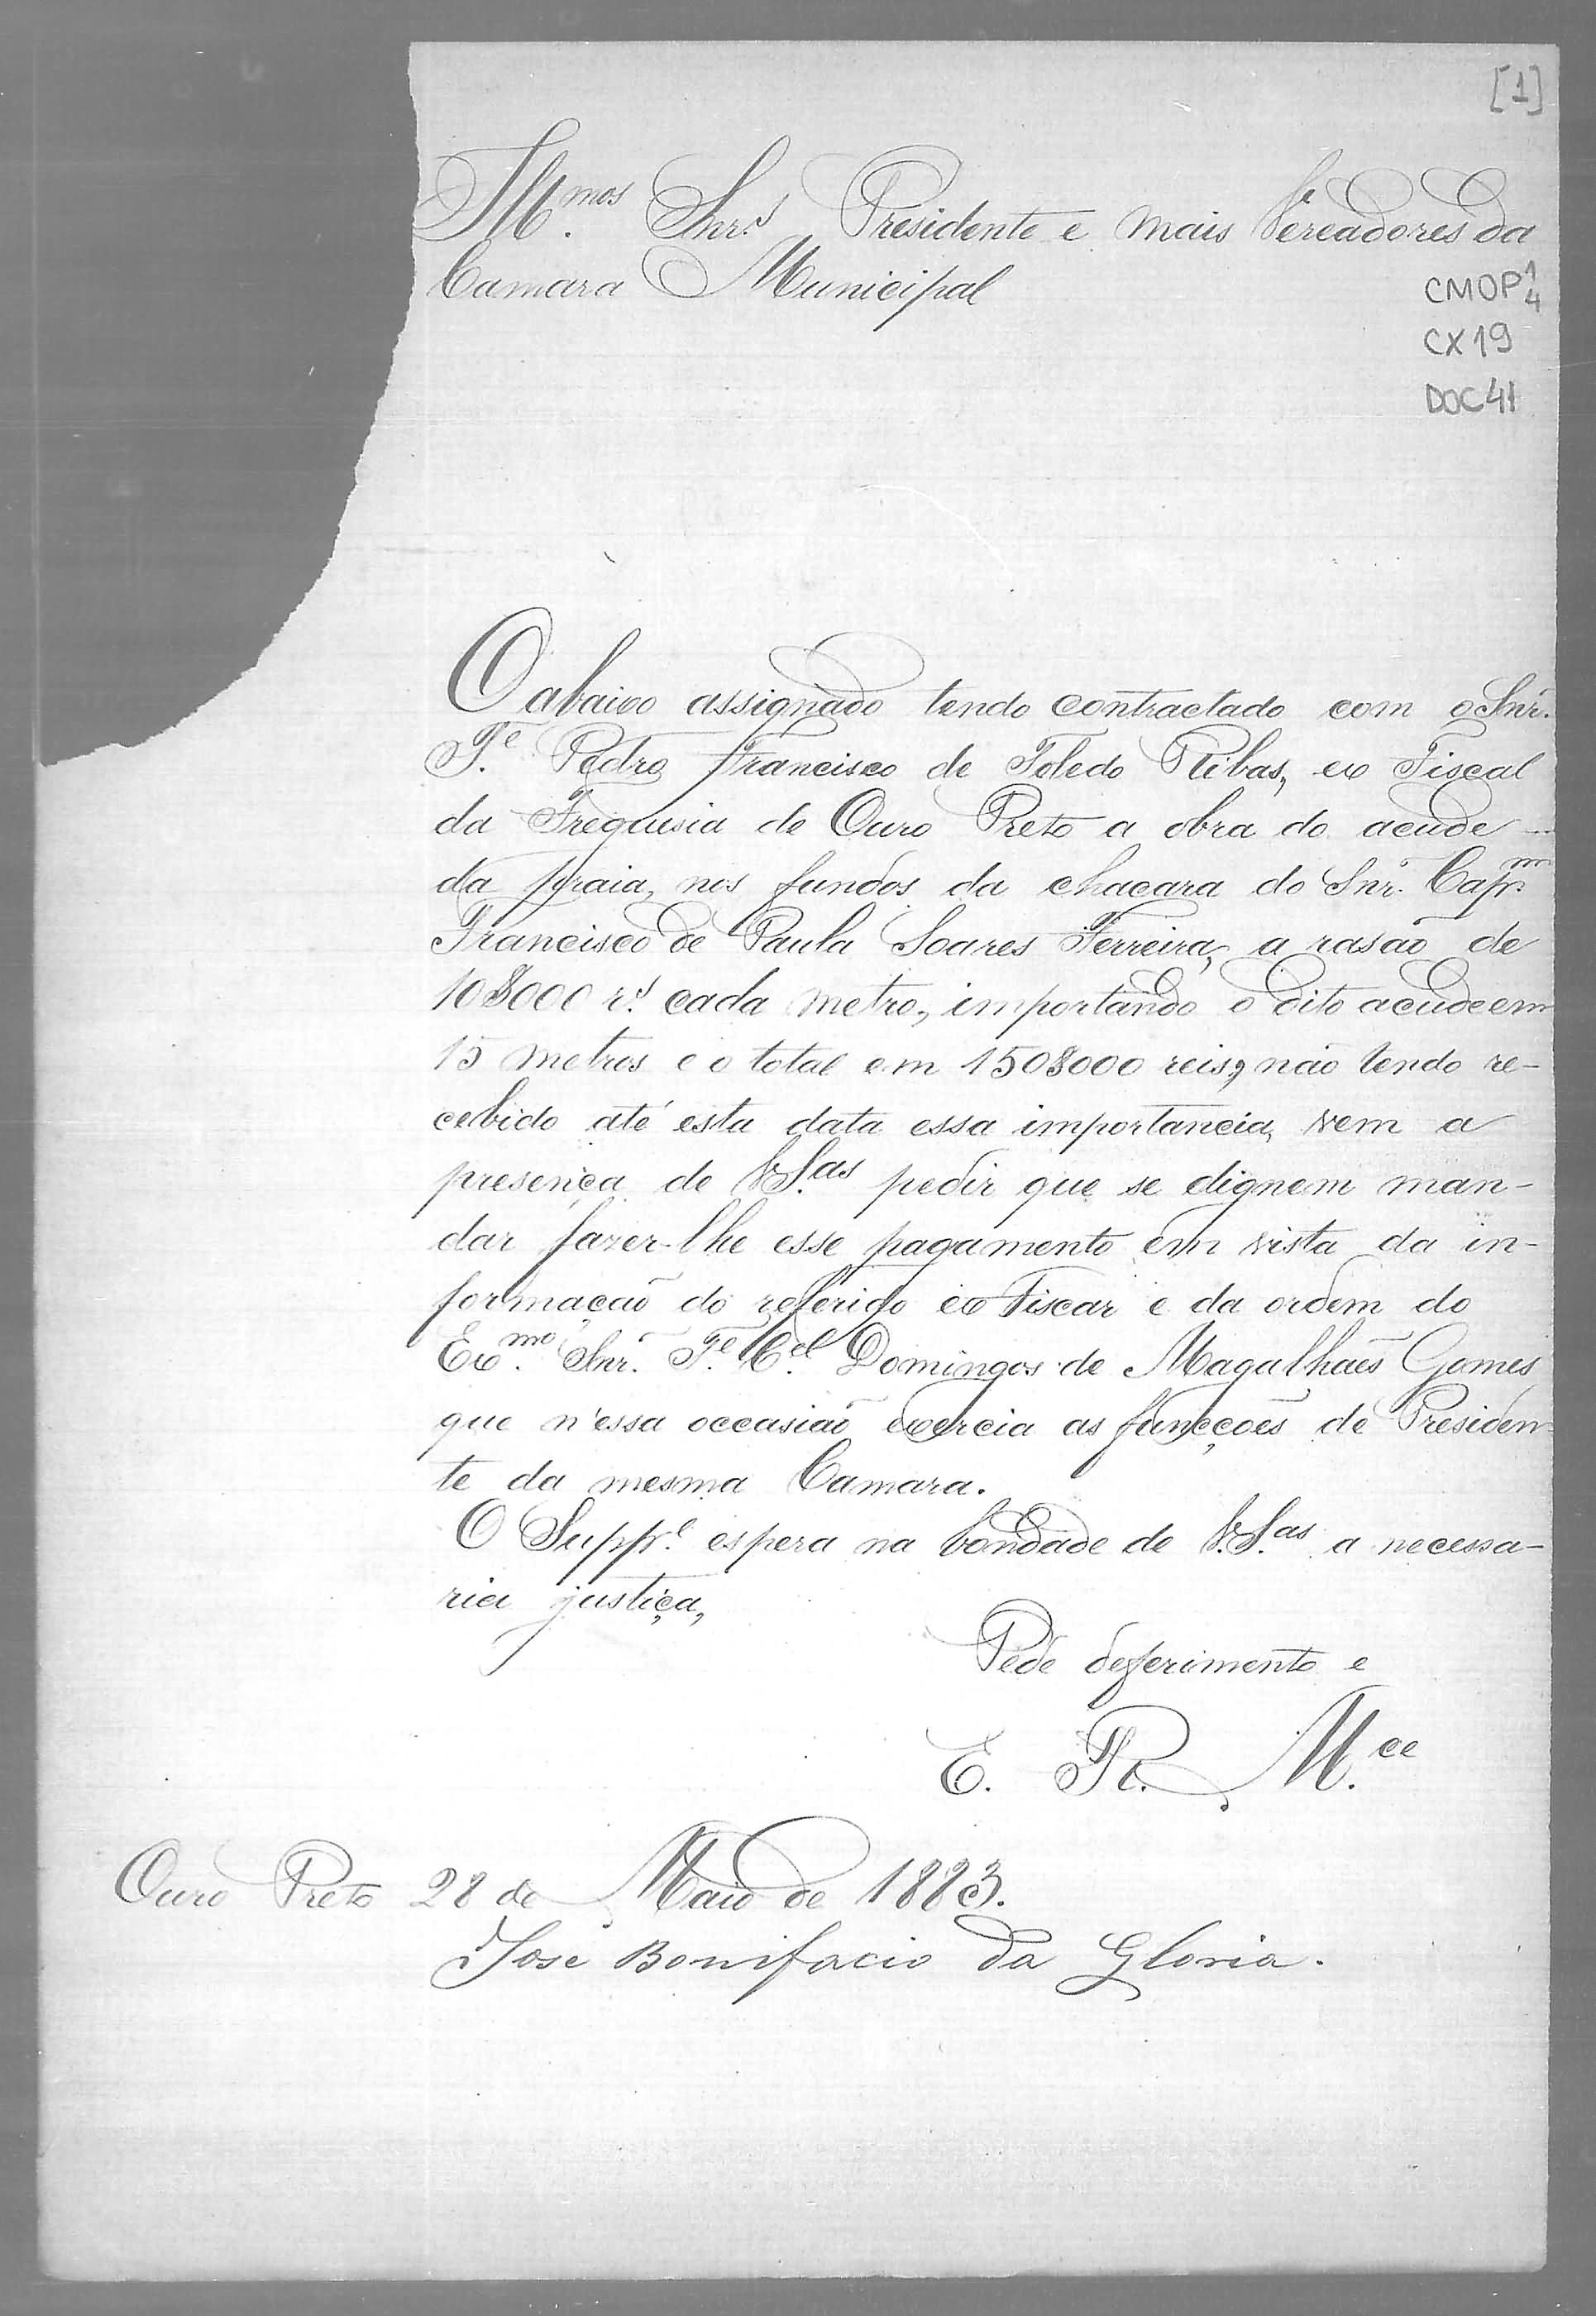 [1]
Ill.mos Snr.s Presidente e mais Vereadores da
Camara Municipal
CMOP 1/4
CX19
DOC41
O abaixo assignado tendo contractado com o Snr.
T.e Pedro Francisco de Toledo Ribas, ex Fiscal
da Freguesia de Ouro Preto a obra do acude
da praia, nos fundos da chacara do Snr. Cap.m
Francisco de Paula Soares Ferreira, a rasão de
10$000 r.s cada metro, importando o dito acude em
15 metros e o total em 150$000 reis, não tendo re-
cebido até esta data essa importancia, vem a
presença de V.S.as pedir que se dignem man-
dar fazer-lhe esse pagamento em vista da in-
formação do referido ex Fiscar e da ordem do
Ex.mo Snr. T.e C.el Domingos de Magalhães Gomes
que n'essa occasião exercia as funcções de Presiden
te da mesma Camara.
O Supp.e espera na bondade de V.S.as a necessa-
ria justiça,
Pede deferimento e
E. R. M.ce
Ouro Preto 28 de Maio de 1883.
José Bonifacio da Gloria.